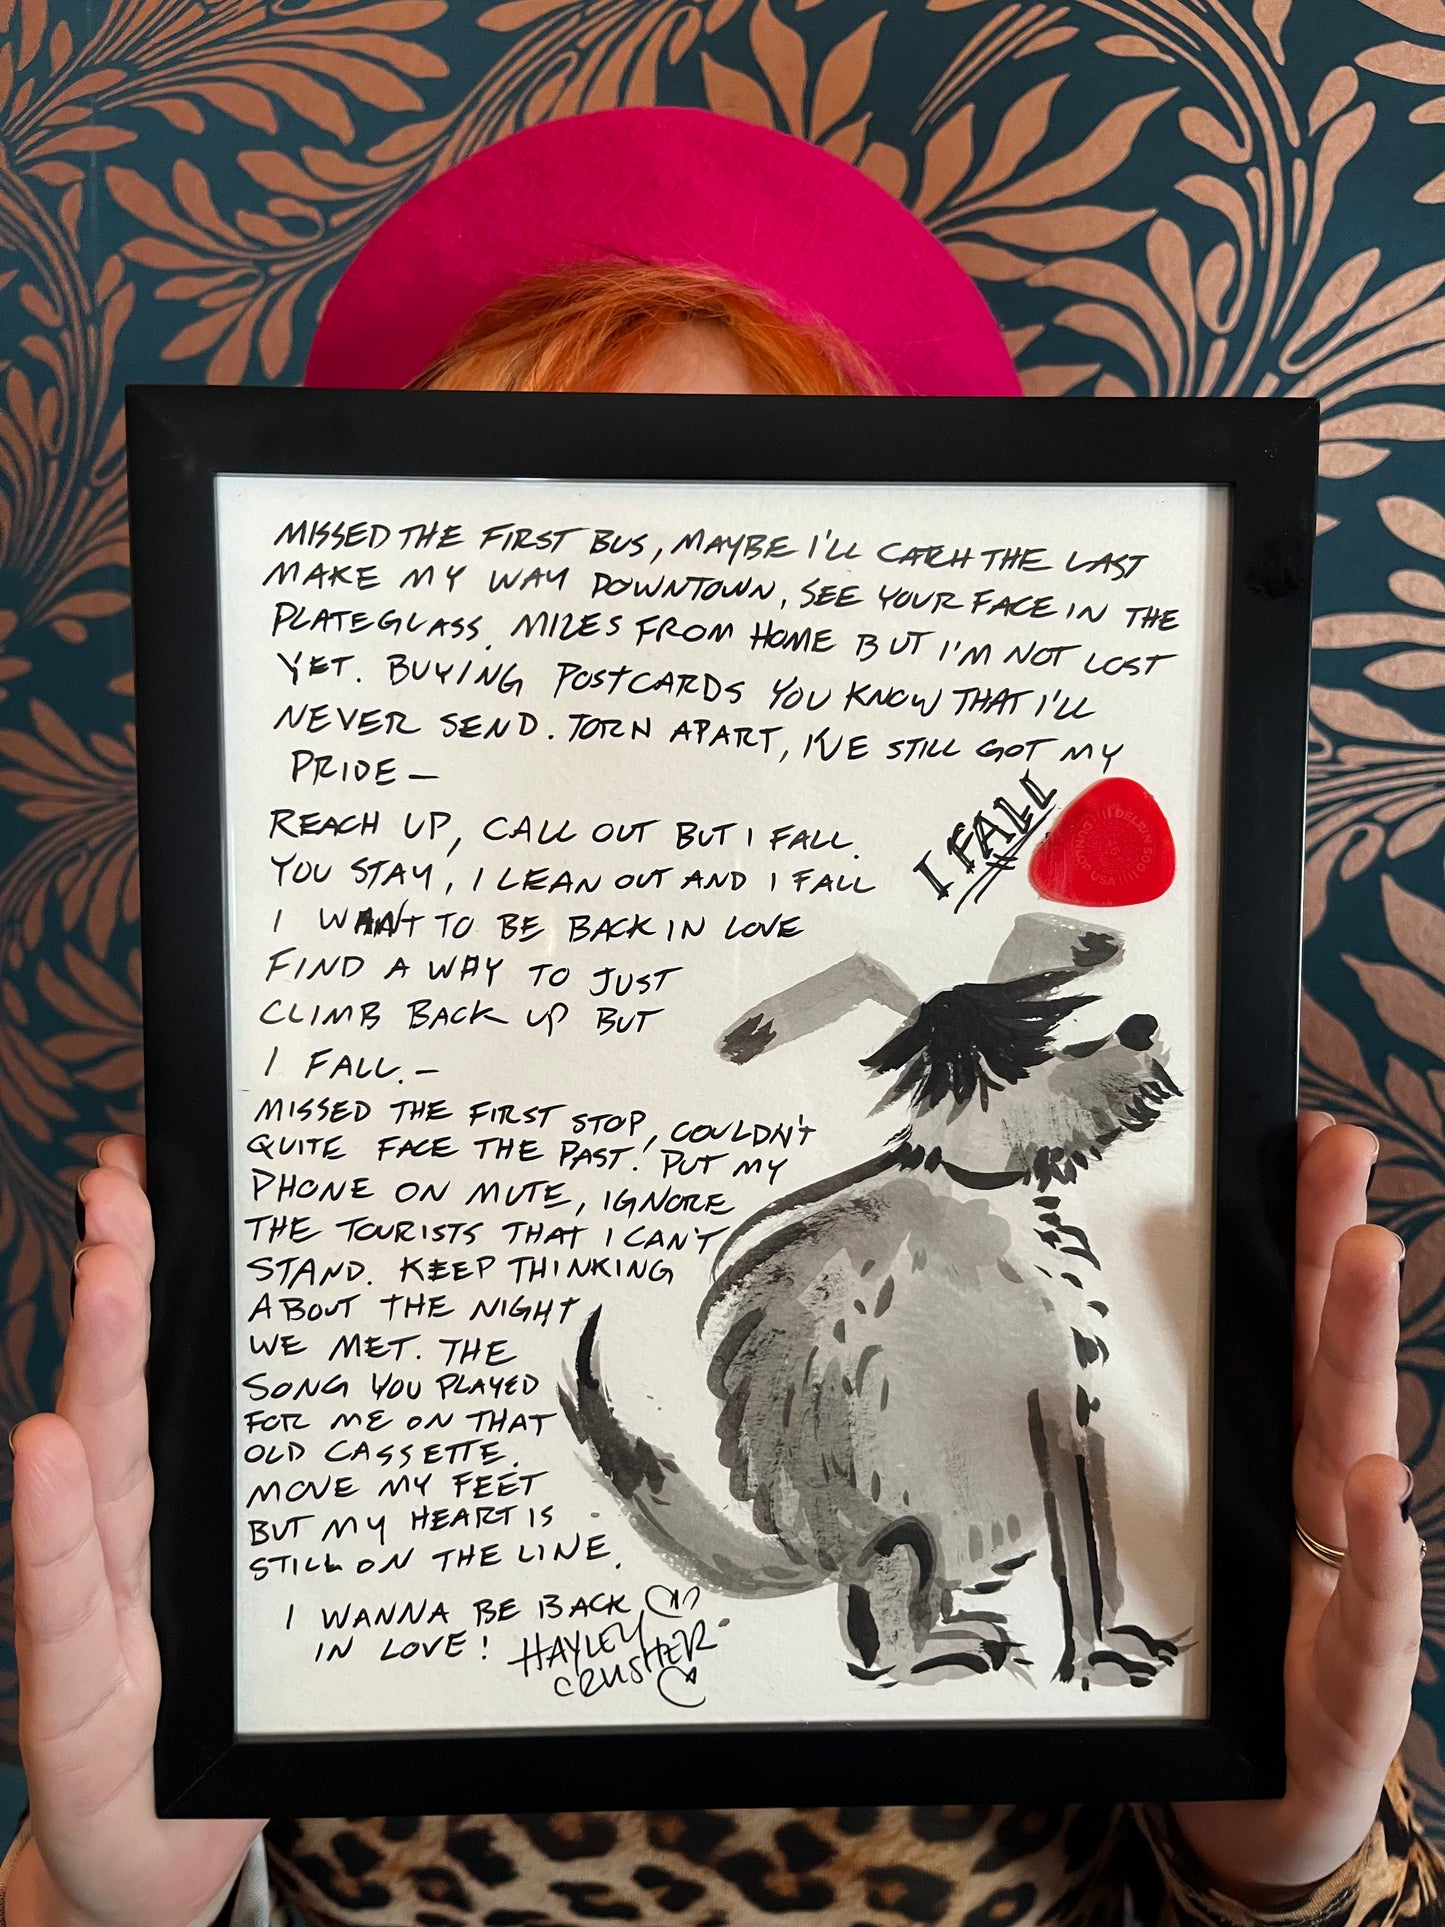 MISSED THE FIRST BUS, MAYBE I'LL CATCH THE LAST
MAKE MY WAY DOWNTOWN, SEE YOUR FACE IN THE
PLATEGLASS. MILES FROM HOME BUT I'M NOT LOST
YET. BUYING POSTCARDS YOU KNOW THAT I'LL
NEVER SEND. TORN APART, I'VE STILL GOT MY
PRIDE —
REACH UP, CALL OUT BUT I FALL.
YOU STAY, I LEAN OUT AND I FALL
I WANT TO BE BACK IN LOVE
FIND A WAY TO JUST
CLIMB BACK UP BUT
I FALL. —
I FALL
DUNLOP USA DELRIN 500
.96
MISSED THE FIRST STOP, COULDN'T
QUITE FACE THE PAST. PUT MY
PHONE ON MUTE, IGNORE
THE TOURISTS THAT I CAN'T
STAND. KEEP THINKING
ABOUT THE NIGHT
WE MET. THE
SONG YOU PLAYED
FOR ME ON THAT
OLD CASSETTE.
MOVE MY FEET
BUT MY HEART IS
STILL ON THE LINE.
I WANNA BE BACK
IN LOVE!
HAYLEY
CRUSHER